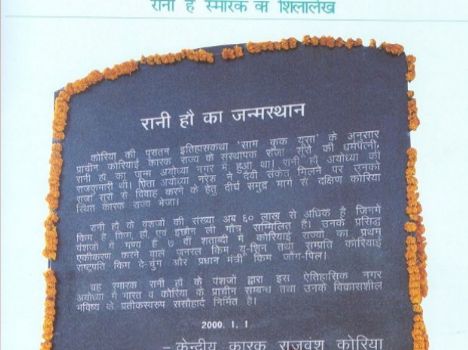 रानी हौ स्मारक का शिलालेख
रानी हौ का जन्मस्थान
कोरिया की पुरातन इतिहासकथा 'साम कुक यूसा' के अनुसार
प्राचीन कोरियाई कारक राज्य के संस्थापक राजा सुरो की धर्मपत्नी,
रानी हौ का जन्म अयोध्या नगर में हुआ था। रानी हौ अयोध्या की
राजकुमारी थी। पिता अयोध्या नरेश ने दैवी संकेत मिलने पर उनको
राजा सुरो से विवाह करने के हेतु दीर्घ समुद्र मार्ग से दक्षिण कोरिया
स्थित कारक राज्य भेजा।
रानी हौ के वंशजों की संख्या अब ६० लाख से अधिक है जिनमें
किम हौ एवं इंछौन ली गौत्र सम्मिलित हैं। उनके प्रसिद्ध
वंशजों में गणना है ७ वीं शताब्दी में कोरियाई राज्यों का प्रथम
एकीकरण करने वाले जनरल किम यू-शिन तथा सम्प्रति कोरियाई
राष्ट्रपति किम दे-जुंग और प्रधान मंत्री किम जोंग-पिल।
यह स्मारक रानी हौ के वंशजों द्वारा इस ऐतिहासिक नगर
अयोध्या में भारत व कोरिया के प्राचीन सम्बन्ध तथा उनके विकासशील
भविष्य के प्रतीकस्वरुप ससौहार्द निर्मित है।
2000. 1. 1
- केन्द्रीय कारक राजवंश कोरिया